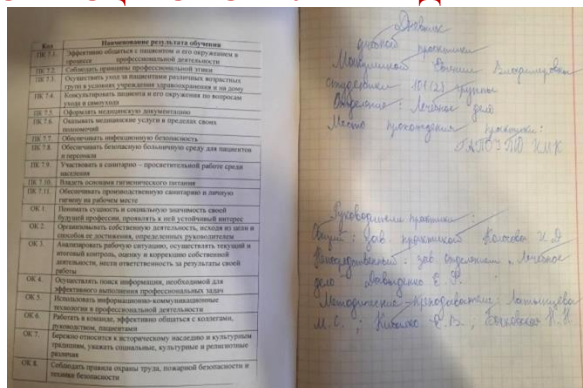 Код Наименование результата обучения
ПК 7.1. Эффективно общаться с пациентом и его окружением в
процессе профессиональной деятельности
ПК 7.2. Соблюдать принципы профессиональной этики
ПК 7.3. Осуществлять уход за пациентами различных возрастных
групп в условиях учреждения здравоохранения и на дому
ПК 7.4. Консультировать пациента и его окружение по вопросам
ухода и самоухода
ПК 7.5. Оформлять медицинскую документацию
ПК 7.6. Оказывать медицинские услуги в пределах своих
полномочий
ПК 7.7. Обеспечивать инфекционную безопасность
ПК 7.8. Обеспечивать безопасную больничную среду для пациентов
и персонала
ПК 7.9. Участвовать в санитарно – просветительной работе среди
населения
ПК 7.10. Владеть основами гигиенического питания
ПК 7.11. Обеспечивать производственную санитарию и личную
гигиену на рабочем месте
ОК 1. Понимать сущность и социальную значимость своей
будущей профессии, проявлять к ней устойчивый интерес
ОК 2. Организовывать собственную деятельность, исходя из цели и
способов ее достижения, определенных руководителем
ОК 3. Анализировать рабочую ситуацию, осуществлять текущий и
итоговый контроль, оценку и коррекцию собственной
деятельности, нести ответственность за результаты своей
работы
ОК 4. Осуществлять поиск информации, необходимой для
эффективного выполнения профессиональных задач
ОК 5. Использовать информационно-коммуникационные
технологии в профессиональной деятельности
ОК 6. Работать в команде, эффективно общаться с коллегами,
руководством, пациентами
ОК 7. Бережно относится к историческому наследию и культурным
традициям, уважать социальные, культурные и религиозные
различия
ОК 8. Соблюдать правила охраны труда, пожарной безопасности и
техники безопасности
Дневник
учебной практики
Владимировны
студентки 101/23 группы
Отделение: Лечебное дело
Место прохождения практики:
ГАПОУ ТО
Руководители практики:
Общий: зав. практикой
Непосредственный: зав. отделением "Лечебное
дело
Методические преподаватели:
М. С.